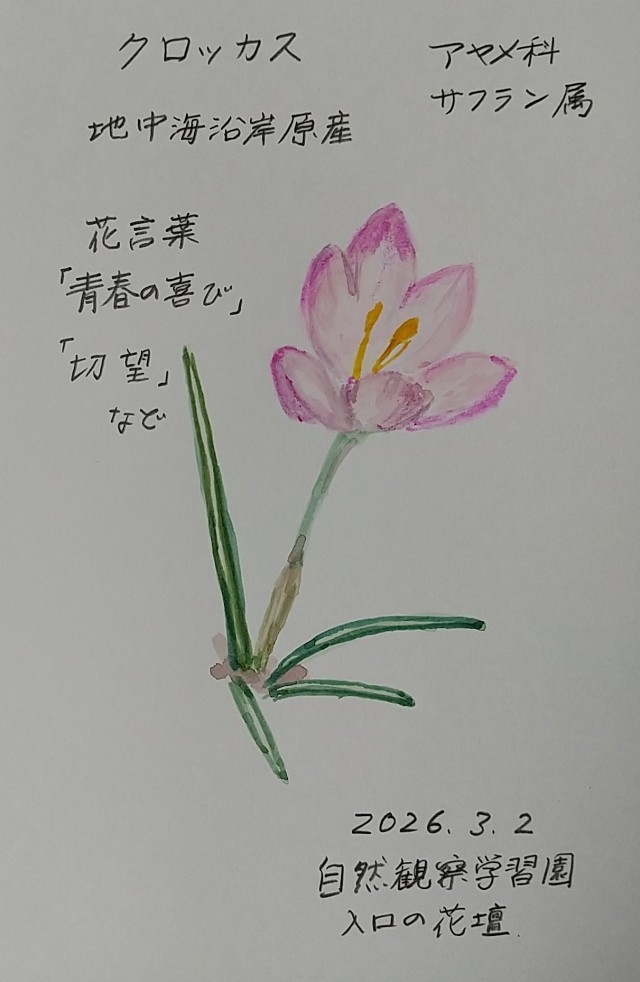 クロッカス
アヤメ科
サフラン属
地中海沿岸原産
花言葉
「青春の喜び」
「切望」
など
2026.3.2
自然観察学習園
入口の花壇.